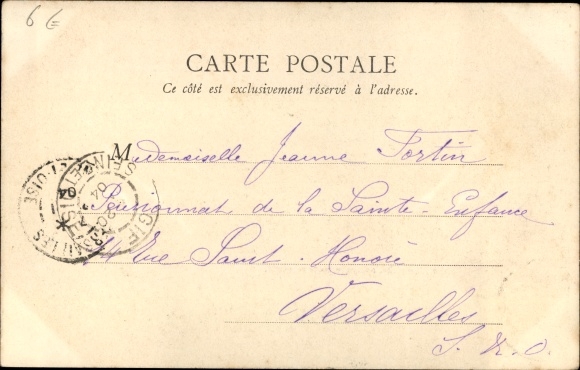 6 €
CARTE POSTALE
Ce côté est exclusivement réservé à l'adresse.
Mademoiselle Jeanne Fortin
Pensionnat de la Sainte-Enfance
Rue Saint-Honoré
Versailles
S. & O.
GIF
SEINE-ET-OISE
04
VERSAILLES
04